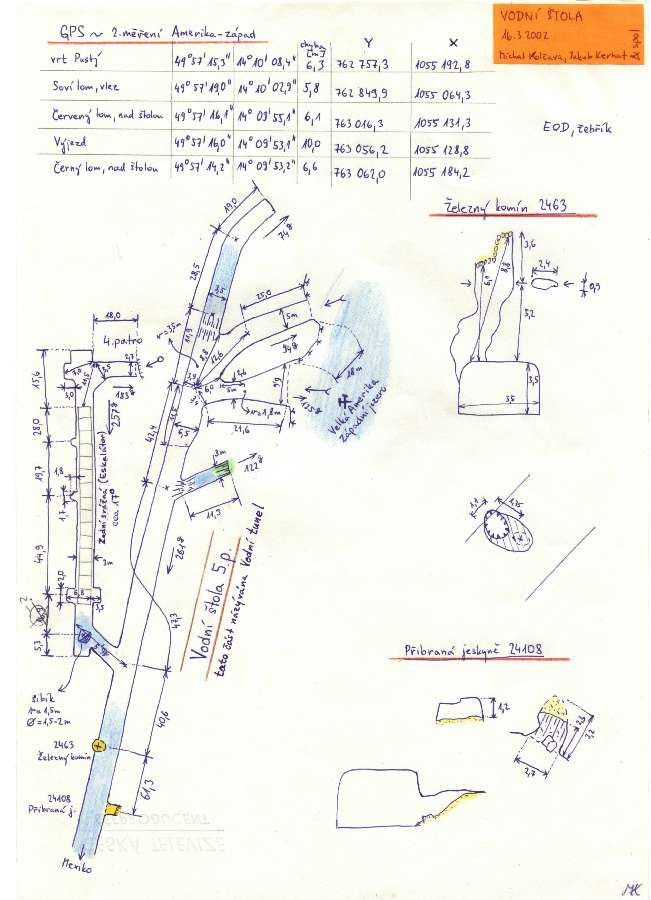 GPS ~ 2.měření Amerika-západ
chyba [m] Y X
vrt Pustý 49°57'15,3" 14°10'08,4" 6,3 762 757,3 1055 192,8
Soví lom, vlez 49°57'19,0" 14°10'02,9" 5,8 762 849,9 1055 064,3
Červený lom, nad štolou 49°57'16,1" 14°09'55,1" 6,1 763 016,3 1055 131,3
Výjezd 49°57'16,0" 14°09'53,1" 10,0 763 056,2 1055 128,8
Černý lom, nad štolou 49°57'14,2" 14°09'53,2" 6,6 763 062,0 1055 184,2
VODNÍ ŠTOLA
16.3.2002
EOD, žebřík
Železný komín 2463
3,6
8,8
6,1
2,4
0,9
5,2
3,5
3,5
19,0
74g
28,5
3,5
11,9
r=3,5m
25,0
5m
94g
8,8
12,6
18m
6,0
r=1,8m
21,6
125g
Velká Amerika
západní jezero
18,0
4.patro
2,7
7,0
11,5
3,0
183g
257g
15,6
28,0
19,7
1,8
1,7
44,9
Zadní svážná (Eskalátor)
cca 17°
3m
2,0
6,8
3,5
5,3
42,4
6,5
3m
122g
11,3
261g
47,3
Vodní štola 5.p.
tato část nazývána Vodní tunel
šibík
r=1,5m
Ø=1,5-2m
40,6
2463
Železný komín
61,3
24108
Přibraná j.
Mexiko
1,1
1,25
Přibraná jeskyně 24108
1,2
2,3
3,2
2,7
ČESKÁ TELEVIZE
MK